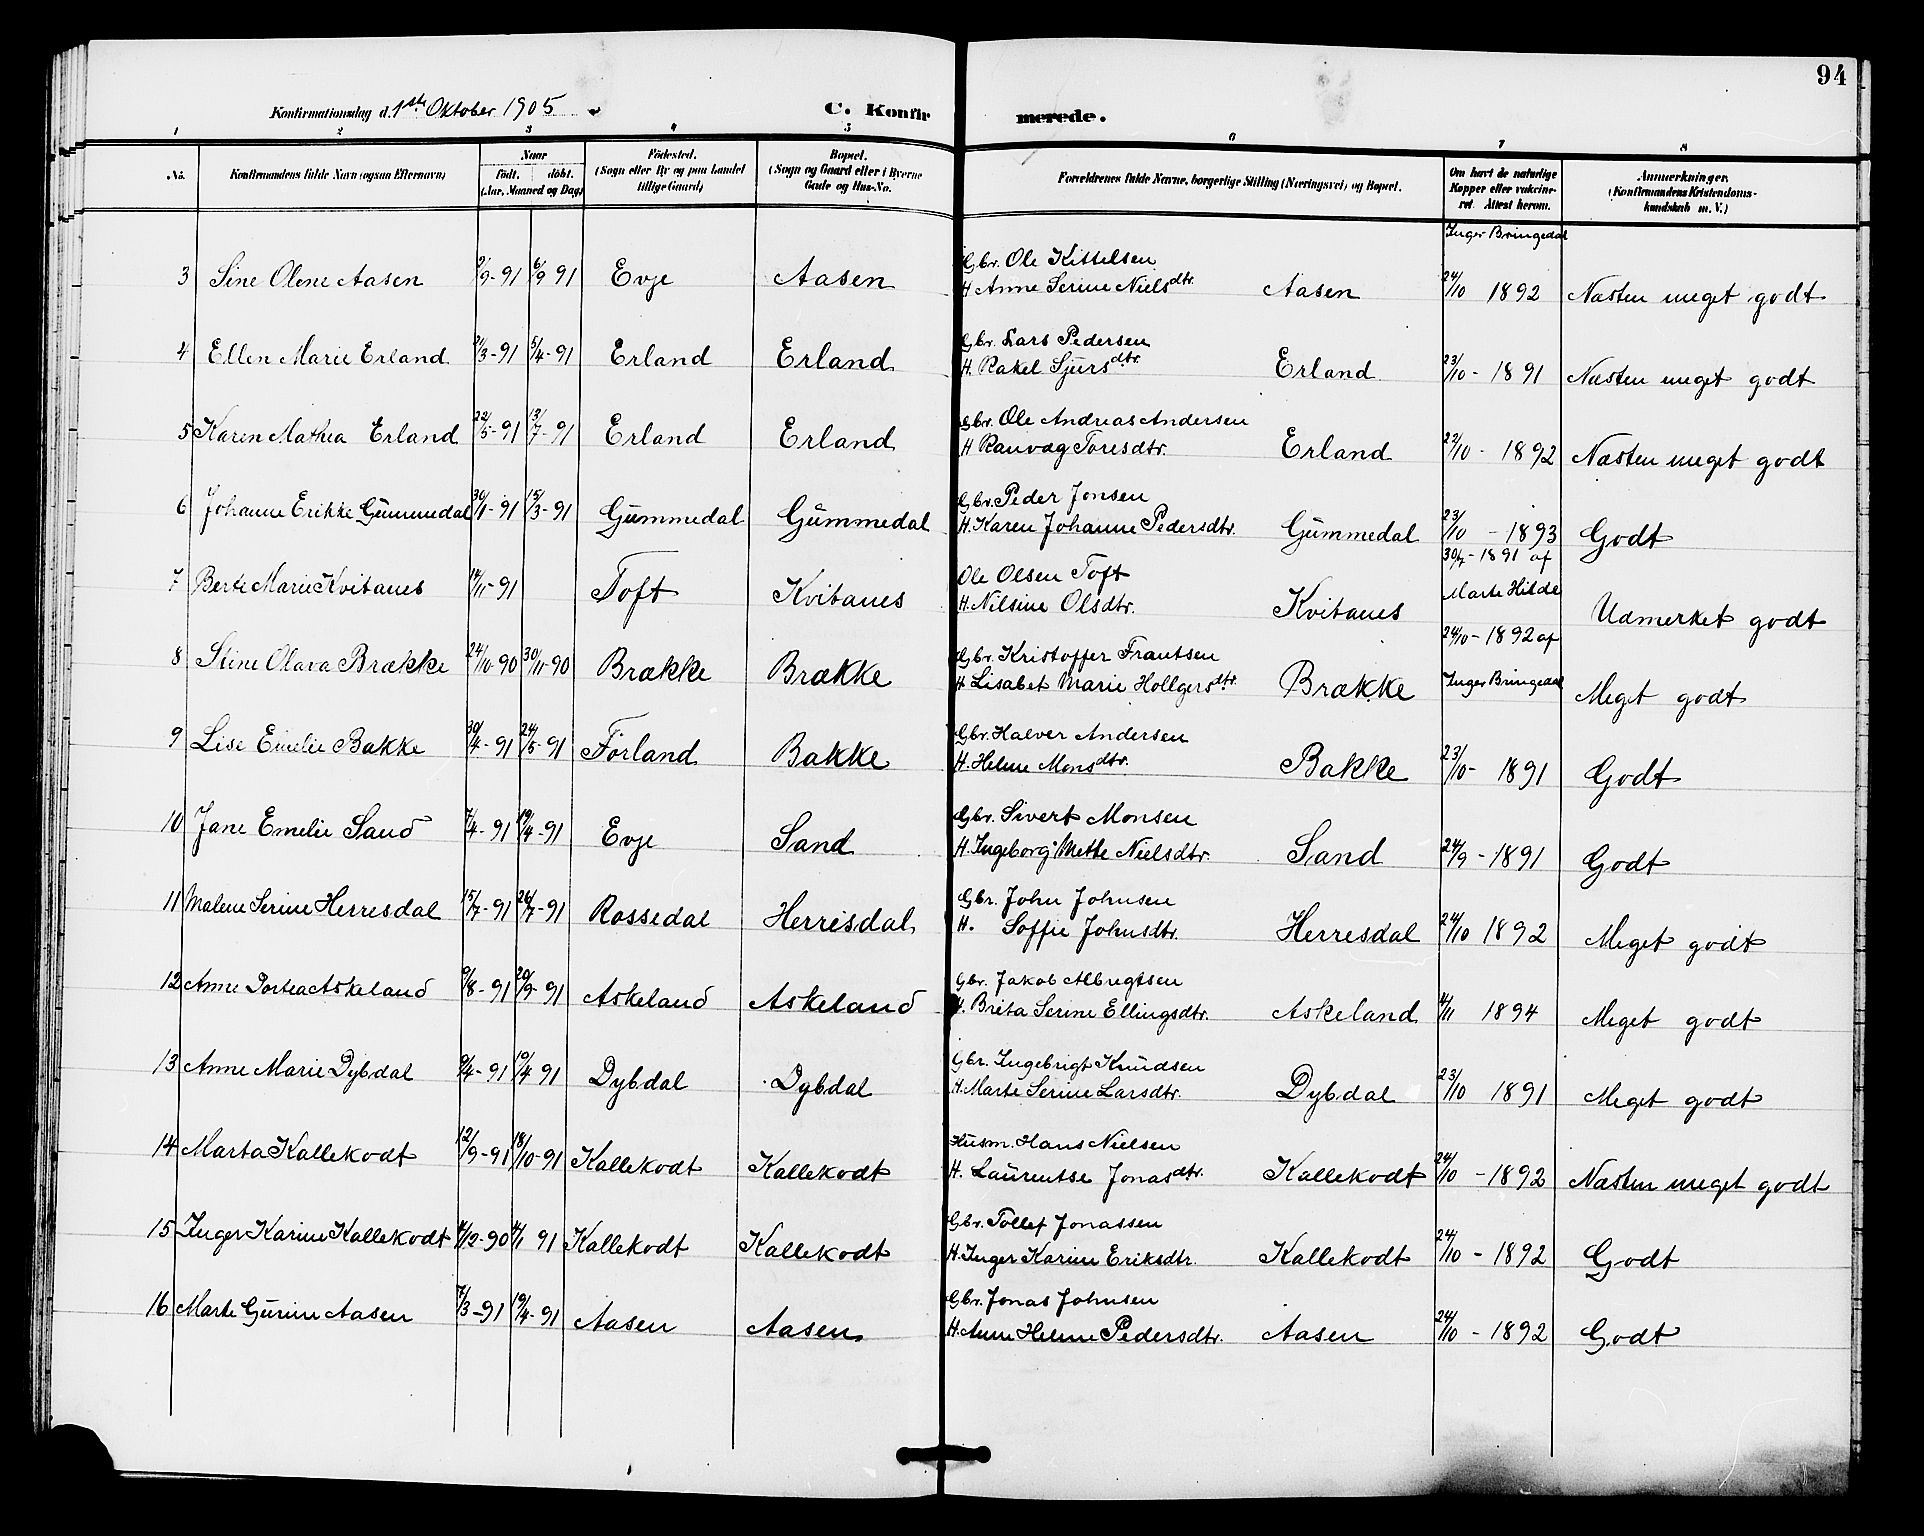 94
Konfirmationsdag d. 1ste Oktober 1905.
C. Konfirmerede.
1 2 3 4 5 6 7 8
No. Konfirmandens fulde Navn (ogsaa Efternavn) Naar født. døbt. (Aar, Maaned og Dag) Fødested. (Sogn eller By og paa Landet tillige Gaard) Bopæl. (Sogn og Gaard eller i Byerne Gade og Hus-No. Forældrenes fulde Navne, borgerlige Stilling (Næringsvei) og Bopæl. Om havt de naturlige Kopper eller vakcineret. Attest herom. Anmærkninger. (Konfirmandens Kristendomskundskab m. V.)
Inger Bringedal
Gbr. Ole Kittelsen
3 Sine Olene Aasen 2/9-91 6/9 91 Evje Aasen H Anne Serine Nielsdtr. Aasen 24/10 1892 Næsten meget godt
Gbr. Lars Pedersen
4 Ellen Marie Erland 21/3-91 5/4-91 Erland Erland H. Rakel Sjursdtr. Erland 23/10-1891 Næsten meget godt
Gbr. Ole Andreas Andersen
5 Karen Mathea Erland 22/5-91 13/7-91 Erland Erland H Ranvæg Toresdtr. Erland 23/10-1892 Næsten meget godt
Gbr. Peder Jonsen
6 Johanne Erikke Gummedal 30/1-91 15/3-91 Gummedal Gummedal H. Karen Johanne Pedersdtr. Gummedal 23/10-1893 Godt
Ole Olsen Toft 30/7-1891 af
7 Berte Marie Kvitanes 14/11-91 Toft Kvitanes H. Nilsine Olsdtr. Kvitanes Marte Hilde Udmerket godt
Gbr. Kristoffer Frantsen 24/10-1892 af
8 Stine Olava Brække 24/10-90 30/11-90 Brække Brække H Lisabet Marie Hollgersdtr. Brække Inger Bringedal Meget godt
Gbr. Halver Andersen
9 Lise Emelie Bakke 30/4-91 24/5-91 Førland Bakke H. Helene Monsdtr. Bakke 23/10-1891 Godt
Gbr. Sivert Monsen
10 Jane Emelie Sand 7/4-91 19/4-91 Evje Sand H. Ingeborg Mette Nielsdtr. Sand 24/9-1891 Godt
Gbr. John Johnsen
11 Malene Serine Herresdal 15/7-91 26/7-91 Rossedal Herresdal H. Soffie Johnsdtr. Herresdal 24/10 1892 Meget godt
Gbr. Jakob Albregtsen
12 Anne Dortea Askeland 9/8-91 20/9-91 Askeland Askeland H. Brita Serine Ellingsdtr. Askeland 4/11 1894 Meget godt
Gbr. Ingebrigt Knudsen
13 Anne Marie Dybdal 9/4-91 19/4 91 Dybdal Dybdal H. Marte Serine Larsdtr. Dybdal 23/10 1891 Meget godt
Husm. Hans Nielsen
14 Marta Kallekodt 12/9-91 18/10-91 Kallekodt Kallekodt H. Laurentse Jonasdtr. Kallekodt 24/10-1892 Næsten meget godt
Gbr. Tollef Jonassen
15 Inger Karine Kallekodt 4/12-90 4/1 91 Kallekodt Kallekodt H. Inger Karine Eriksdtr. Kallekodt 24/10-1892 Godt
Gbr. Jonas Johnsen
16 Marte Gurine Aasen 7/3-91 19/4-91 Aasen Aasen H. Anne Helene Pedersdtr. Aasen 24/10-1892 Godt